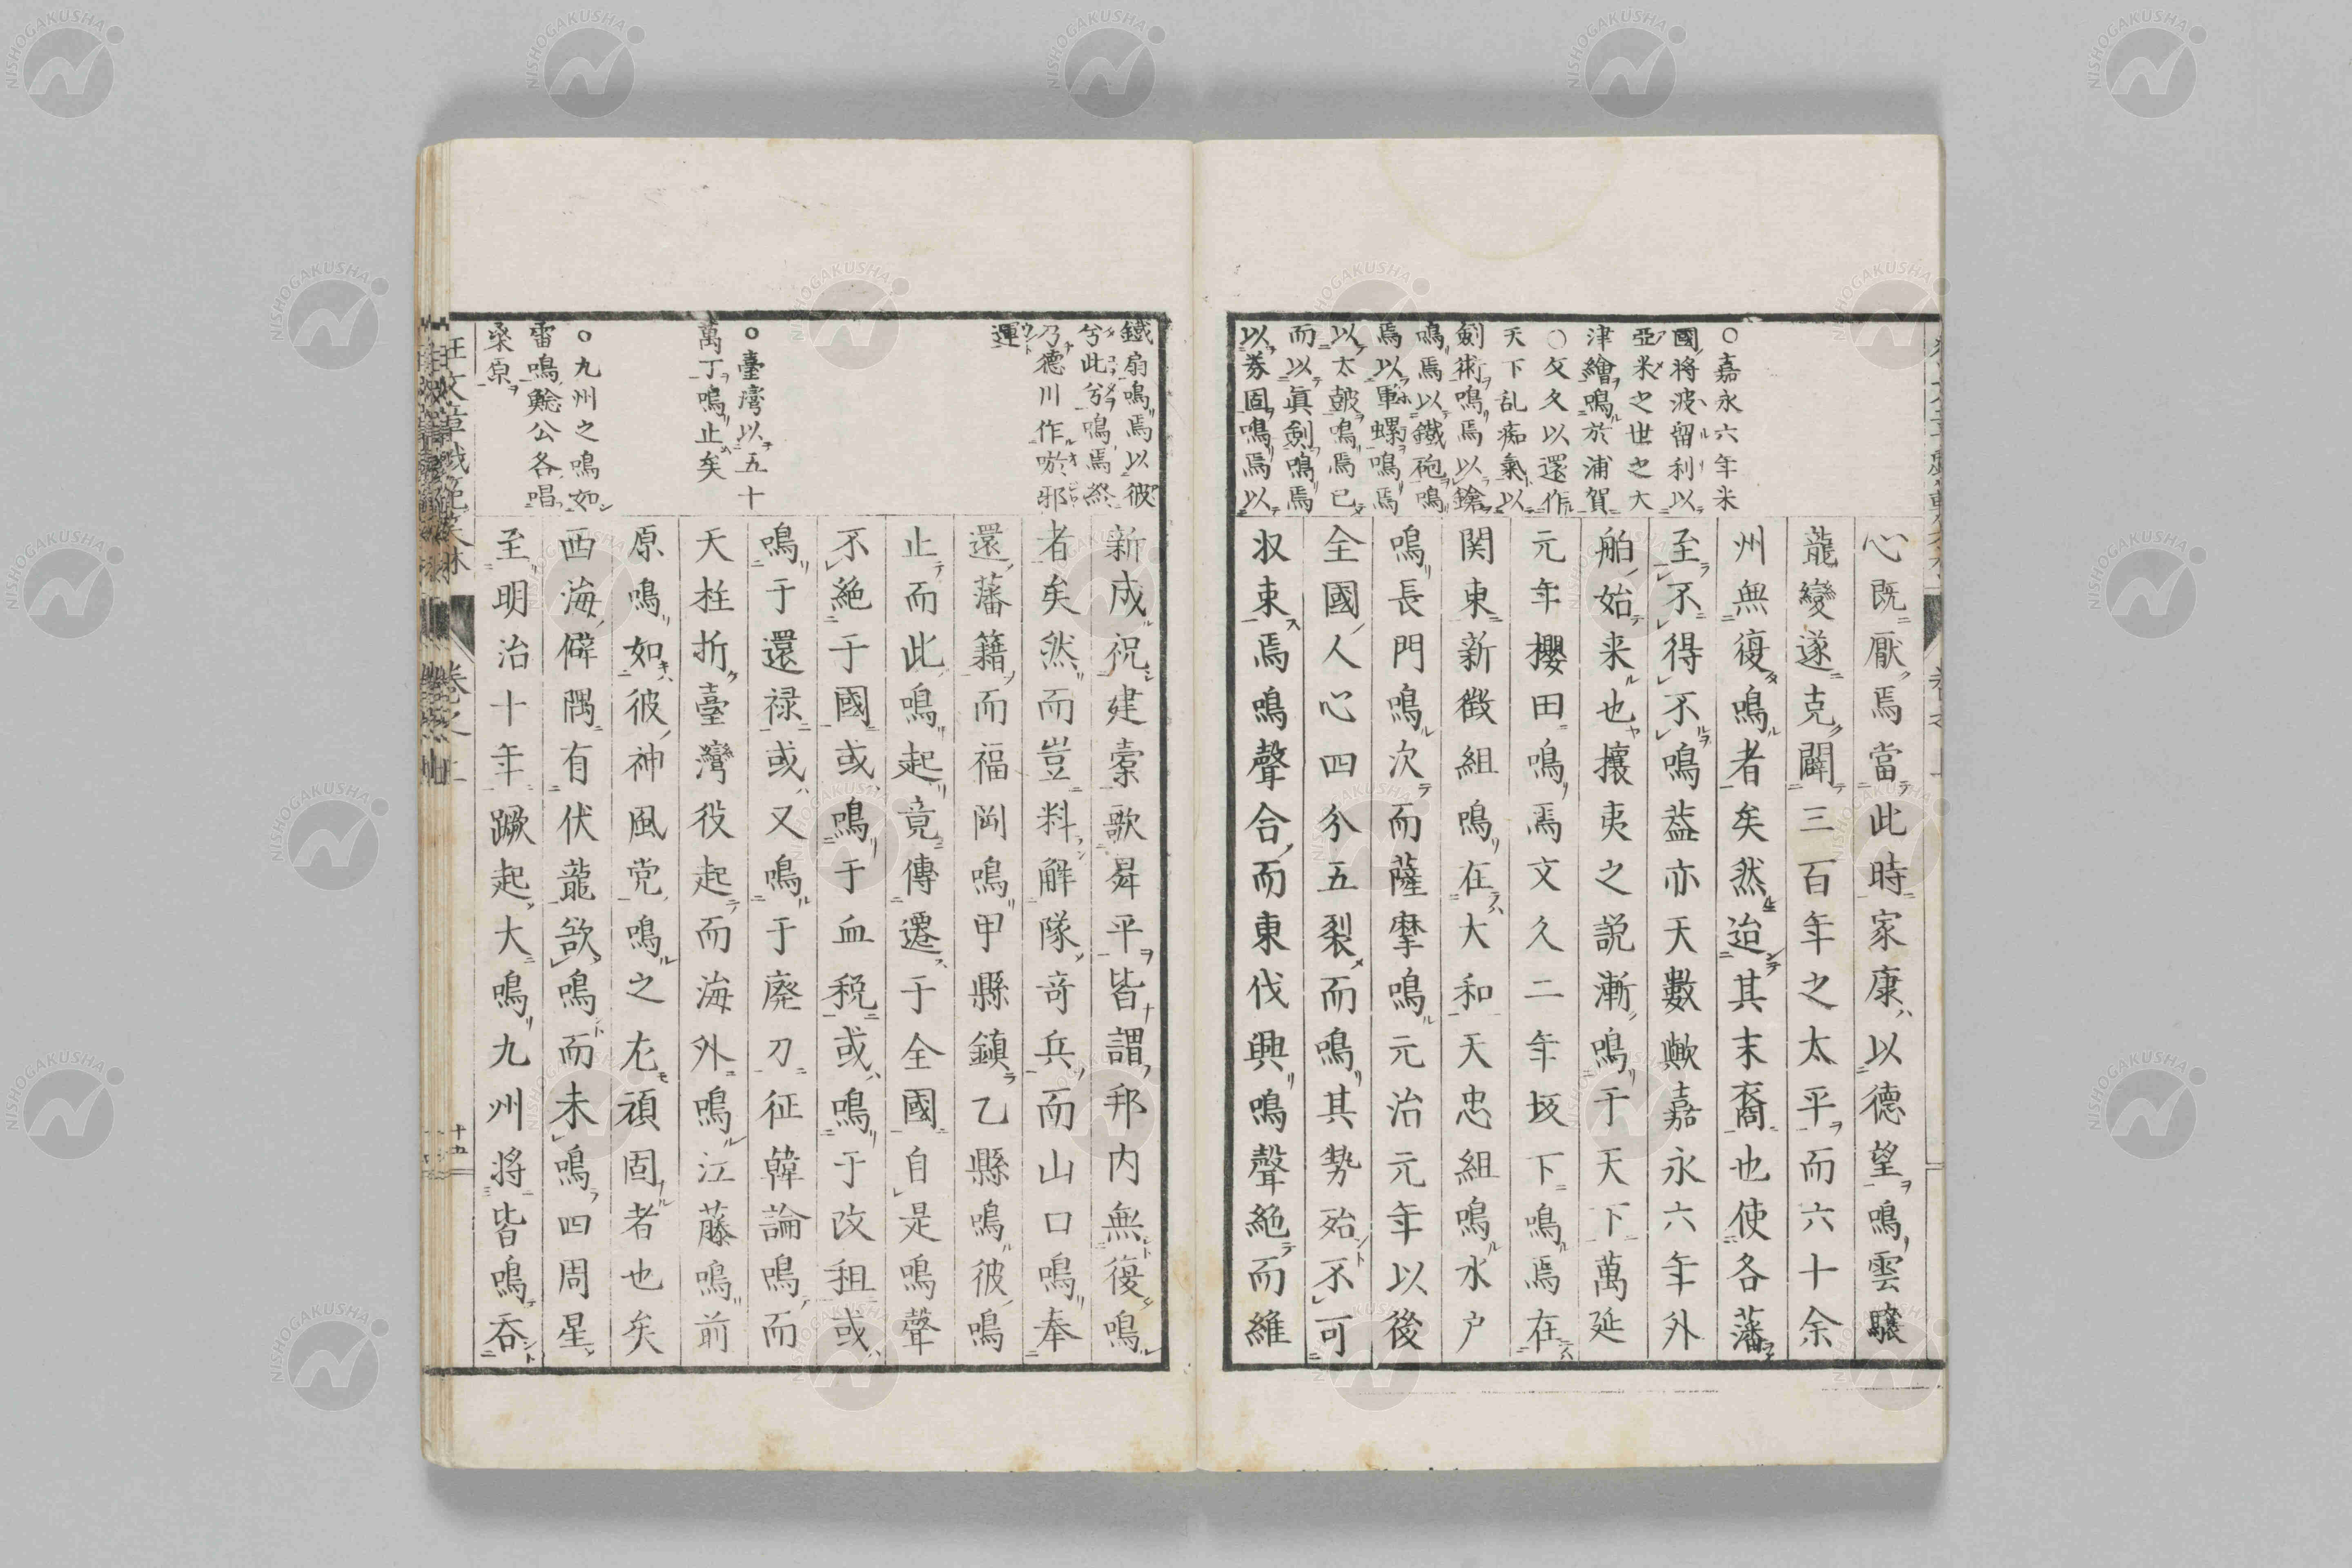 ○嘉永六年米
國将波留利以
亞米之世之大
津繪鳴於浦賀
○文久以還作
天下乱痴氣以
劍術鳴焉以鎗
鳴焉以鐵砲鳴
焉以軍螺鳴焉
以太皷鳴焉已
而以眞劍鳴焉
以券固鳴焉以
心既厭焉當此時家康以德望鳴雲驤
龍變遂克闢三百年之太平而六十余
州無復鳴者矣然迨其末裔也使各藩
至不得不鳴蓋亦天數歟嘉永六年外
舶始来也攘夷之説漸鳴于天下萬延
元年櫻田鳴焉文久二年坂下鳴焉在
関東新徴組鳴在大和天忠組鳴水户
鳴長門鳴次而薩摩鳴元治元年以後
全國人心四分五裂而鳴其勢殆不可
収束焉鳴聲合而東伐興鳴聲絶而維
鐵扇鳴焉以彼
兮此兮鳴焉終
乃德川作喲邪
運
○臺湾以五十
萬丁鳴止矣
○九州之鳴如
雷鳴鯰公各唱
桒原
新成祝建櫜歌舜平皆謂邦内無復鳴
者矣然而豈料解隊竒兵而山口鳴奉
還藩籍而福岡鳴甲縣鎮乙縣鳴彼鳴
止而此鳴起竟傳遷于全國自是鳴聲
不絶于國或鳴于血税或鳴于改租或
鳴于還禄或又鳴于廃刀征韓論鳴而
天柱折臺灣役起而海外鳴江藤鳴前
原鳴如彼神風党鳴之尤頑固者也矣
西海僻隅有伏龍欲鳴而未鳴四周星
至明治十年蹶起大鳴九州将皆鳴呑
卷之二
十五
NISHOGAKUSHA